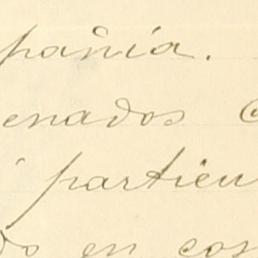 pañia.
enados C
i particu
do en con